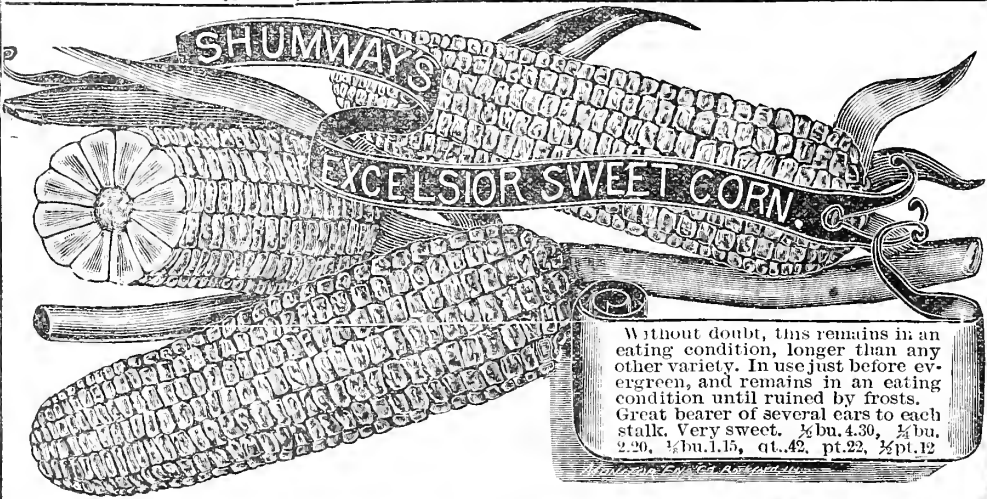 SHUMWAY'S
EXCELSIOR SWEET CORN.
Without doubt, this remains in an
eating condition, longer than any
other variety. In use just before ev-
ergreen, and remains in an eating
condition until ruined by frosts.
Great bearer of several ears to each
stalk. Very sweet. ½bu. 4.30, ¼bu.
2.20, ⅛bu. 1.15, qt..42, pt.22, ½pt.12